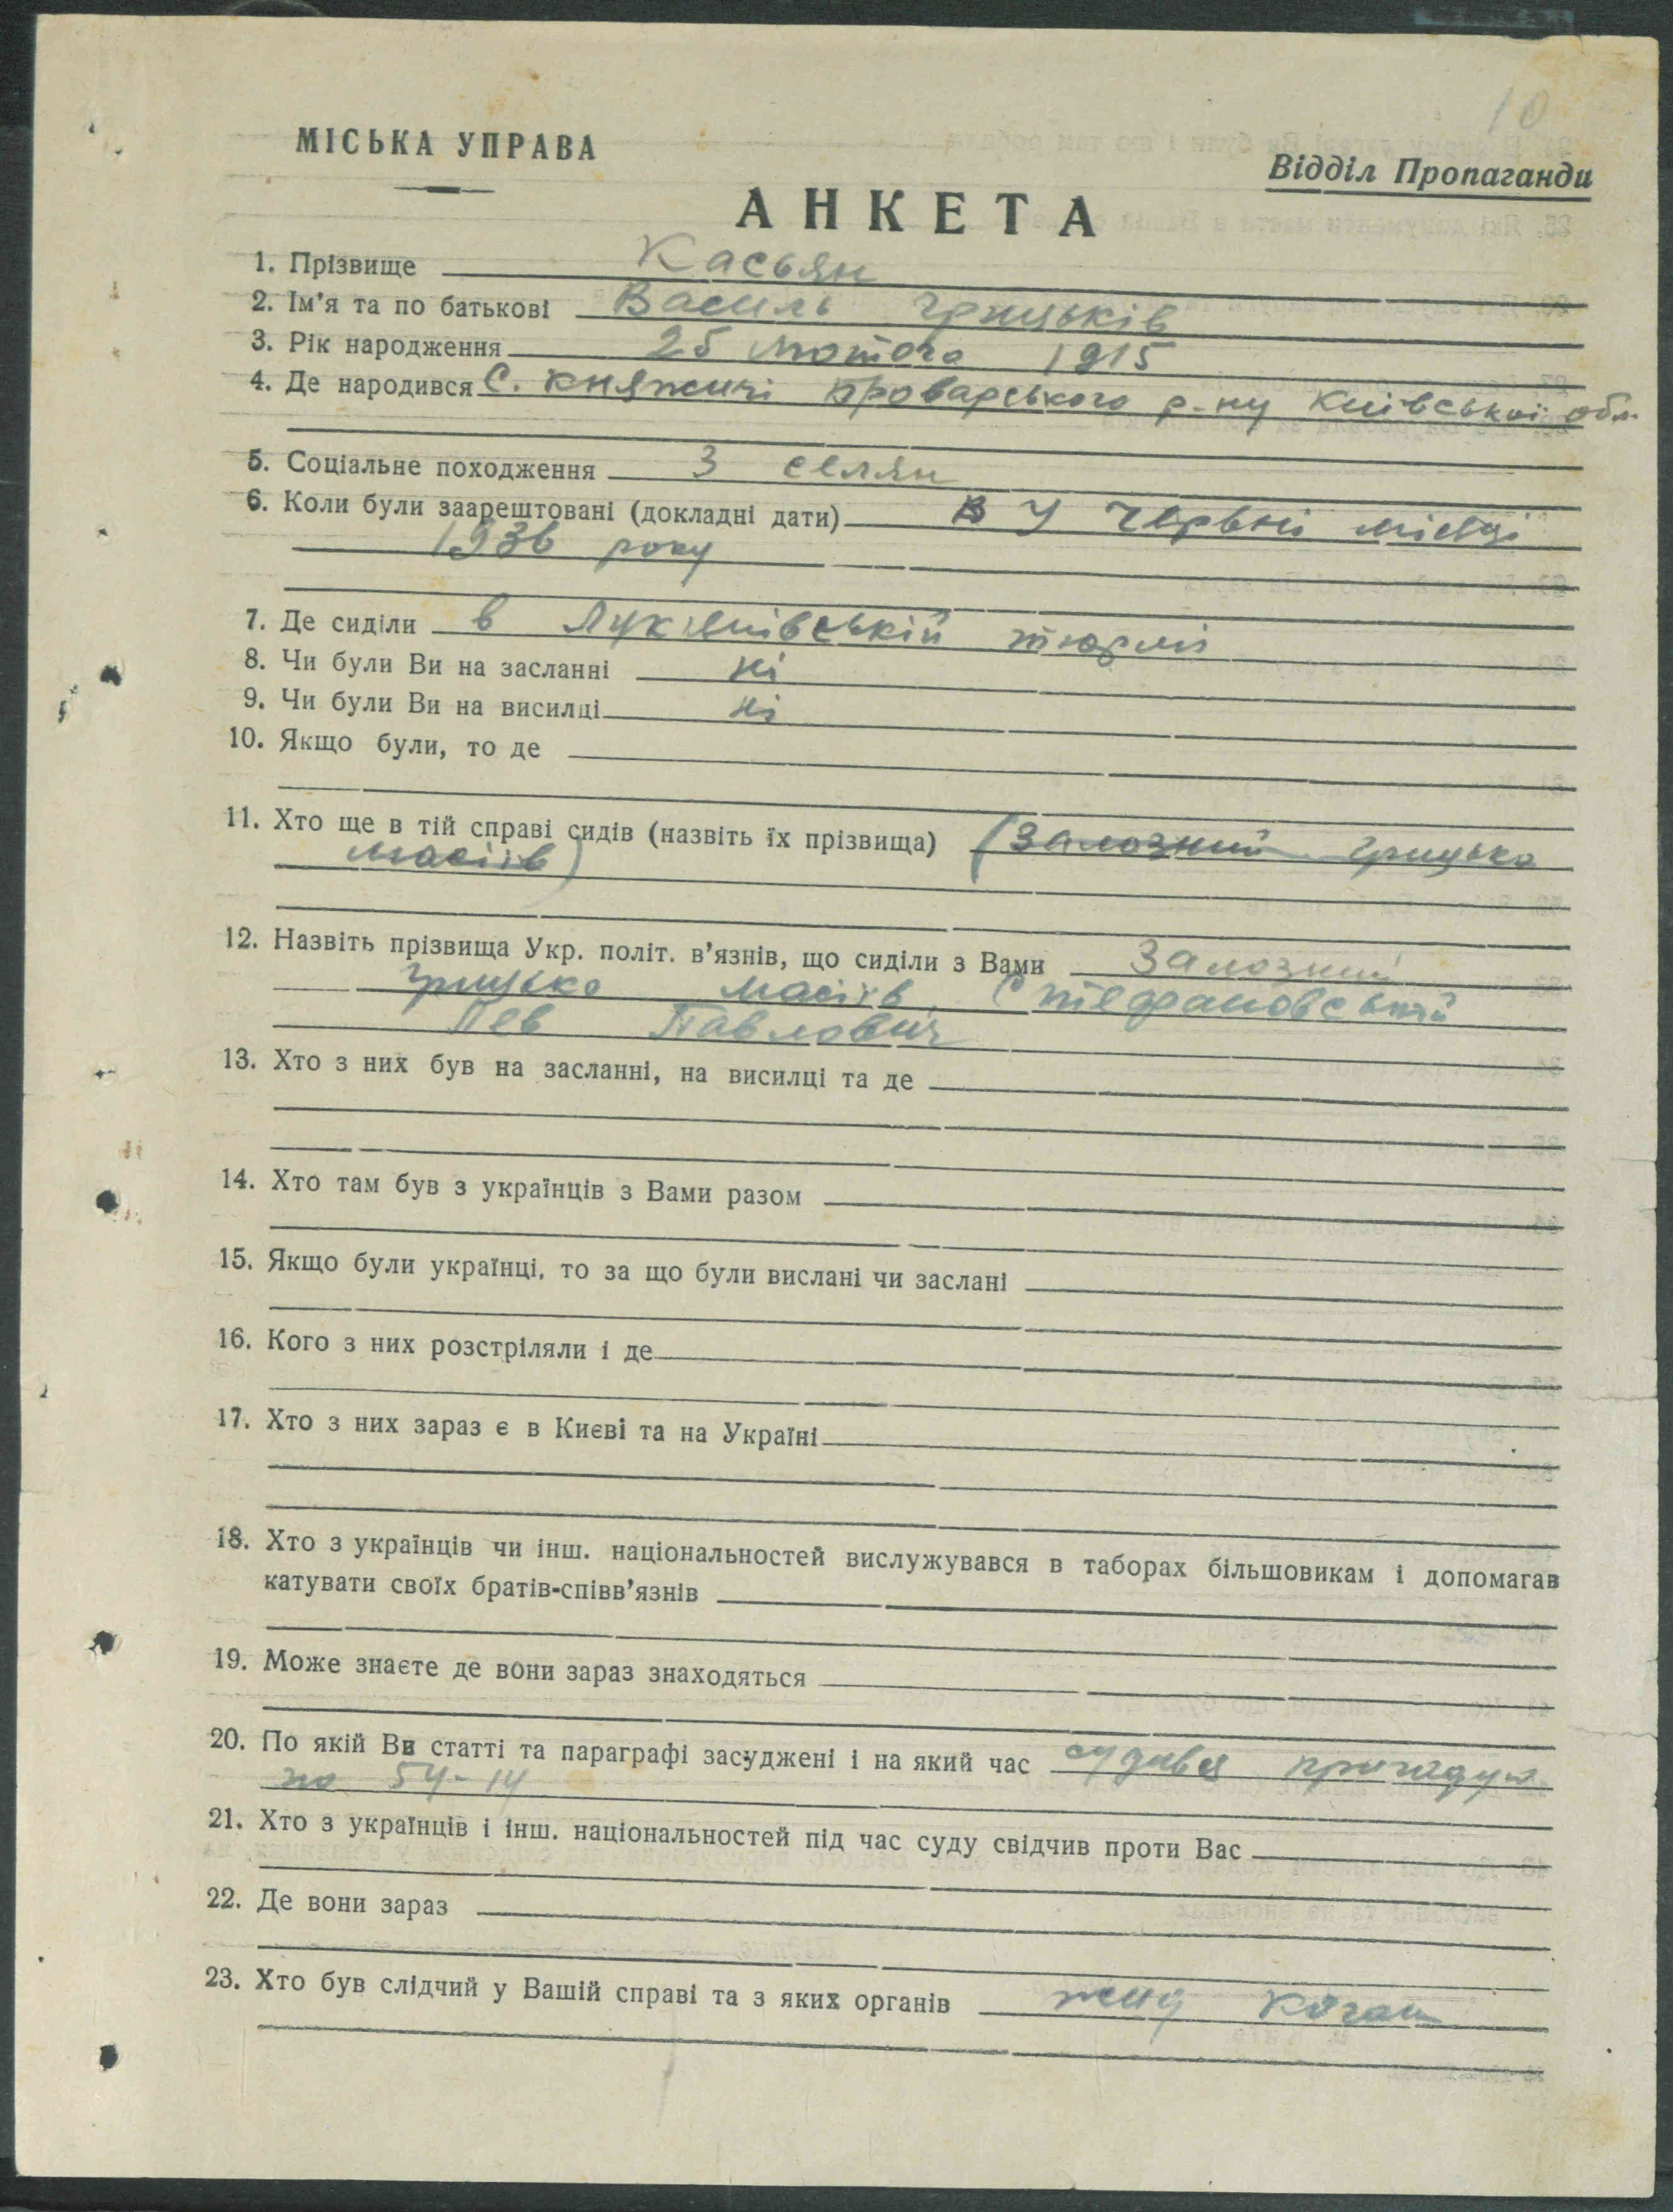 10
МІСЬКА УПРАВА
Відділ Пропаганди
АНКЕТА
1. Прізвище Касьян
2. Ім'я та по батькові Василь Грицьків
3. Рік народження 25 лютого 1915
4. Де народився С. Княжичі Броварського р-ну Київської обл.
5. Соціальне походження З селян
6. Коли були заарештовані (докладні дати) В У Червні місяці
1936 року
7. Де сиділи в Лукянівській тюрмі
8. Чи були Ви на засланні ні
9. Чи були Ви на висилці ні
10. Якщо були, то де
11. Хто ще в тій справі сидів (назвіть їх прізвища) (Залозний Грицько
Масіїв)
12. Назвіть прізвища Укр. політ. в'язнів, що сиділи з Вами Залозний
Грицько Масіїв, Стефановський
Лев Павлович
13. Хто з них був на засланні, на висилці та де
14. Хто там був з українців з Вами разом
15. Якщо були українці, то за що були вислані чи заслані
16. Кого з них розстріляли і де
17. Хто з них зараз є в Києві та на Україні
18. Хто з українців чи інш. національностей вислужувався в таборах більшовикам і допомагав
катувати своїх братів-співв'язнів
19. Може знаєте де вони зараз знаходяться
20. По якій Ви статті та параграфі засуджені і на який час судився
по 54-14
21. Хто з українців і інш. національностей під час суду свідчив проти Вас
22. Де вони зараз
23. Хто був слідчий у Вашій справі та з яких органів жид Коган